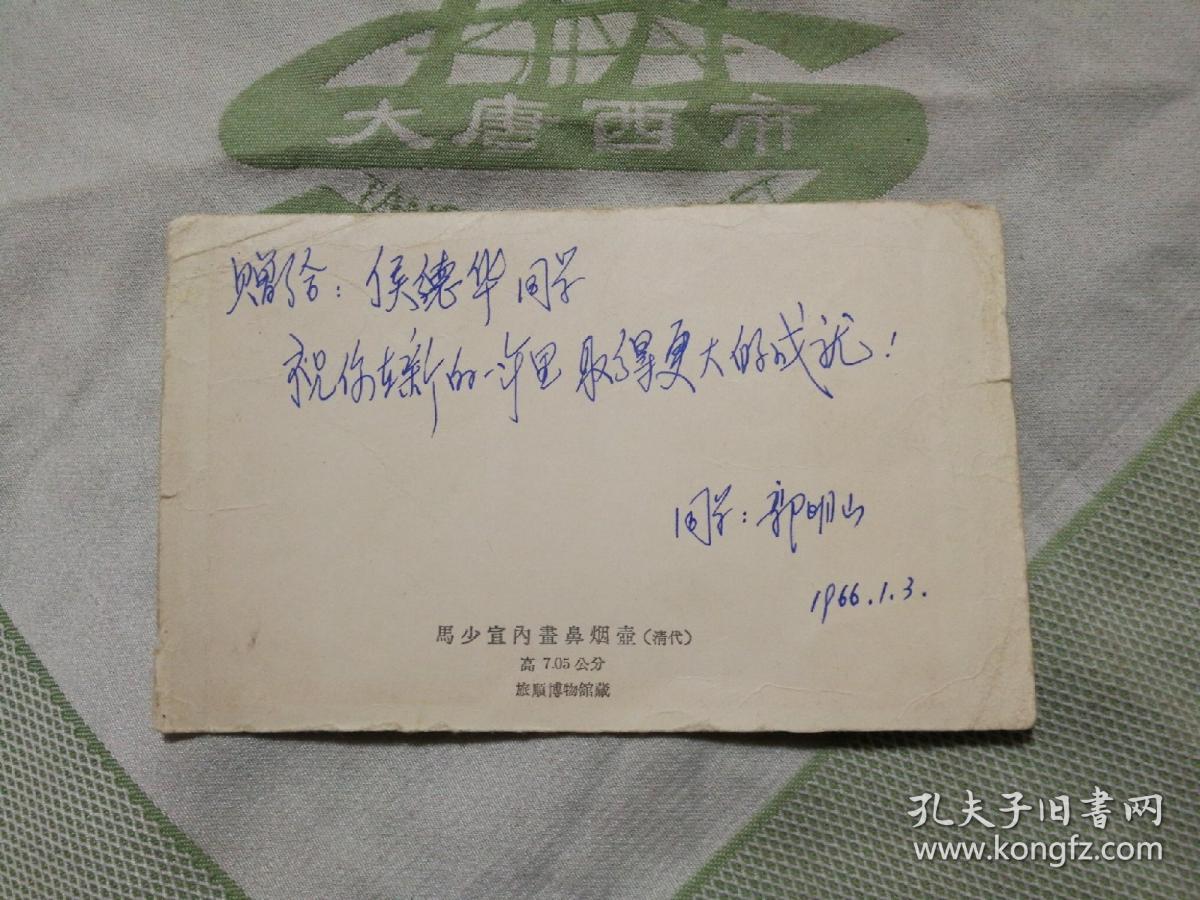 大唐西市
赠给：侯德华同学
祝你在新的一年里取得更大的成就！
同学：郭明山
1966.1.3.
馬少宣內畫鼻烟壺（清代）
高 7.05 公分
旅順博物館藏
孔夫子旧书网
www.kongfz.com